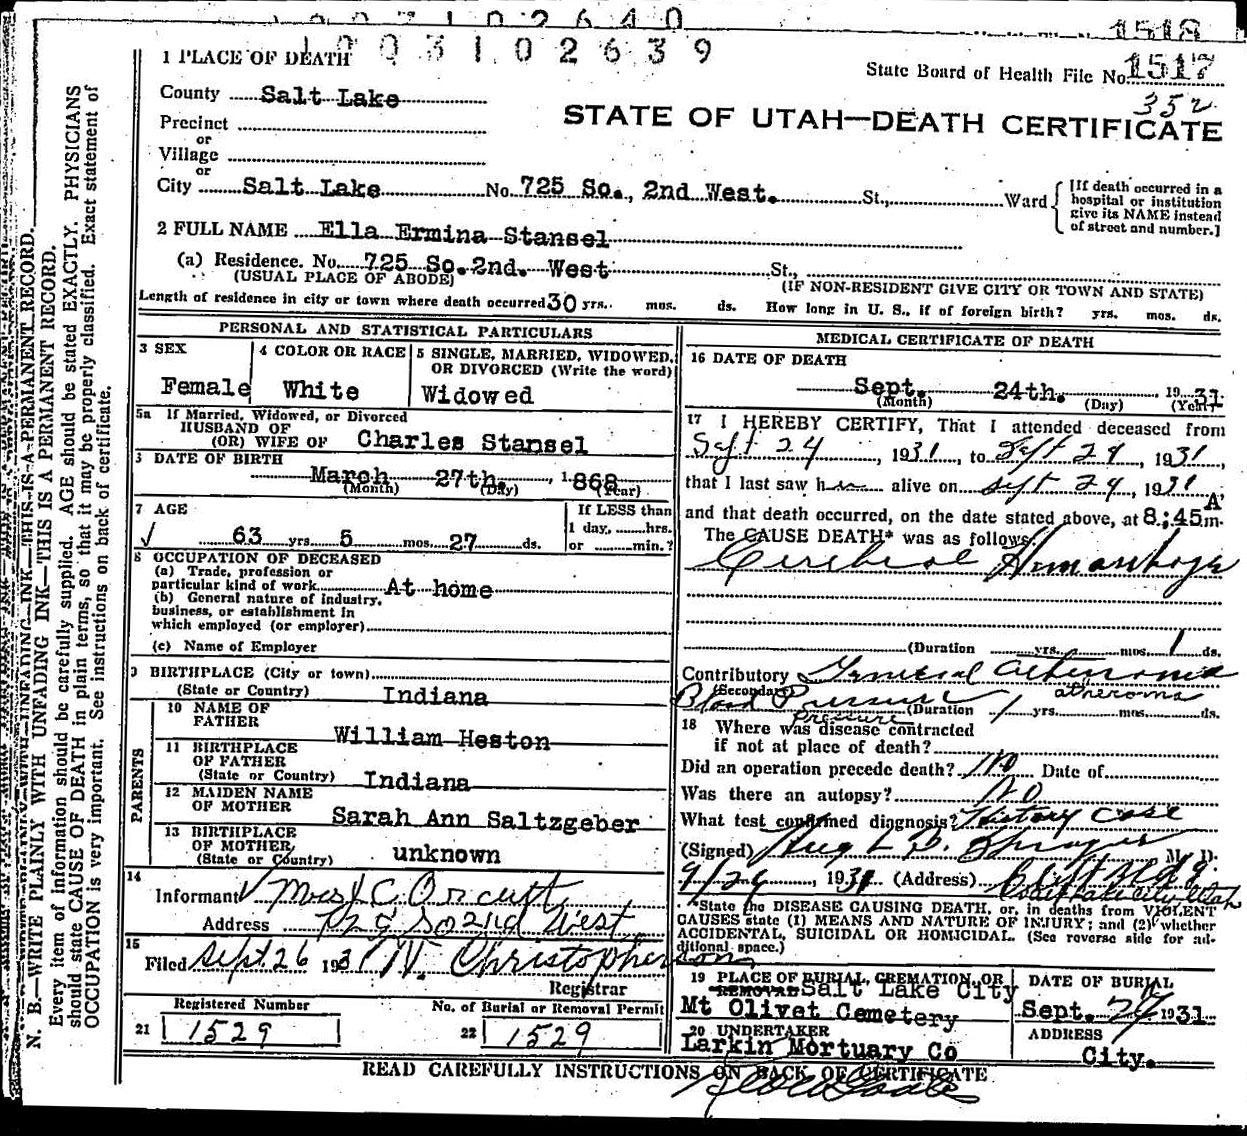 1003102640
1518
1003102639
1 PLACE OF DEATH
State Board of Health File No. 1517
352
County Salt Lake
STATE OF UTAH—DEATH CERTIFICATE
Precinct
or
Village
or
City Salt Lake No. 725 So., 2nd West. St., Ward
[If death occurred in a
hospital or institution
give its NAME instead
of street and number.]
2 FULL NAME Ella Ermina Stansel
(a) Residence. No. 725 So. 2nd. West St.,
(USUAL PLACE OF ABODE) (IF NON-RESIDENT GIVE CITY OR TOWN AND STATE)
Length of residence in city or town where death occurred 30 yrs. mos. ds. How long in U. S., if of foreign birth? yrs. mos. ds.
PERSONAL AND STATISTICAL PARTICULARS
3 SEX
Female
4 COLOR OR RACE
White
5 SINGLE, MARRIED, WIDOWED,
OR DIVORCED (Write the word)
Widowed
5a If Married, Widowed, or Divorced
HUSBAND OF
(OR) WIFE OF Charles Stansel
DATE OF BIRTH
March 27th. , 1868
(Month) (Day) (Year)
7 AGE
63 yrs. 5 mos. 27 ds.
If LESS than
1 day, hrs.
or min.?
8 OCCUPATION OF DECEASED
(a) Trade, profession or
particular kind of work At home
(b) General nature of industry,
business, or establishment in
which employed (or employer)
(c) Name of Employer
BIRTHPLACE (City or town)
(State or Country) Indiana
PARENTS
10 NAME OF
FATHER
William Heston
11 BIRTHPLACE
OF FATHER
(State or Country) Indiana
12 MAIDEN NAME
OF MOTHER
Sarah Ann Saltzgeber
13 BIRTHPLACE
OF MOTHER
(State or Country) unknown
14
Informant Mrs C. Orcutt
Address 725 So 2nd West
15
Filed Sept 26 1931 N. Christopherson
Registrar
Registered Number
21 1529
No. of Burial or Removal Permit
22 1529
MEDICAL CERTIFICATE OF DEATH
16 DATE OF DEATH
Sept. 24th. 1931
(Month) (Day) (Year)
17 I HEREBY CERTIFY, That I attended deceased from
Sept 24, 1931, to Sept 24, 1931,
that I last saw her alive on Sept 24, 1931
and that death occurred, on the date stated above, at 8:45 A m.
The CAUSE DEATH* was as follows:
Cerebral Hemorrhage
(Duration yrs. mos. 1 ds.
Contributory General atheroma
(Secondary) atheroma
Blood Pressure (Duration 1 yrs. mos. ds.
pressure
18 Where was disease contracted
if not at place of death?
Did an operation precede death? No Date of
Was there an autopsy? No
What test confirmed diagnosis? History Case
(Signed) Hugh B. Sprague M. D.
9/24, 1931 (Address) Clift Bldg.
Salt Lake City Utah
State the DISEASE CAUSING DEATH, or, in deaths from VIOLENT
CAUSES state (1) MEANS AND NATURE OF INJURY; and (2) whether
ACCIDENTAL, SUICIDAL OR HOMICIDAL. (See reverse side for ad-
ditional space.)
19 PLACE OF BURIAL, CREMATION, OR
REMOVAL Salt Lake City
Mt Olivet Cemetery
DATE OF BURIAL
Sept. 1931
20 UNDERTAKER
Larkin Mortuary Co
ADDRESS
City.
READ CAREFULLY INSTRUCTIONS ON BACK OF CERTIFICATE
N. B.—WRITE PLAINLY WITH UNFADING INK—THIS IS A PERMANENT RECORD.
Every item of information should be carefully supplied. AGE should be stated EXACTLY. PHYSICIANS
should state CAUSE OF DEATH in plain terms, so that it may be properly classified. Exact statement of
OCCUPATION is very important. See instructions on back of certificate.